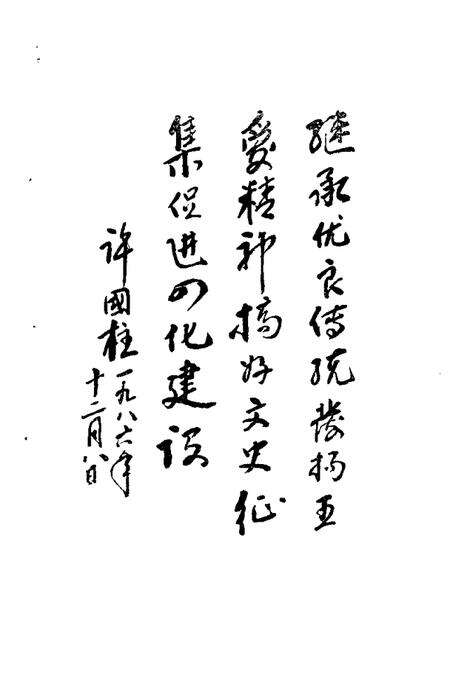 继承优良传统发扬五
爱精神搞好文史征
集促进四化建设
许國柱
一九八六年
十二月八日